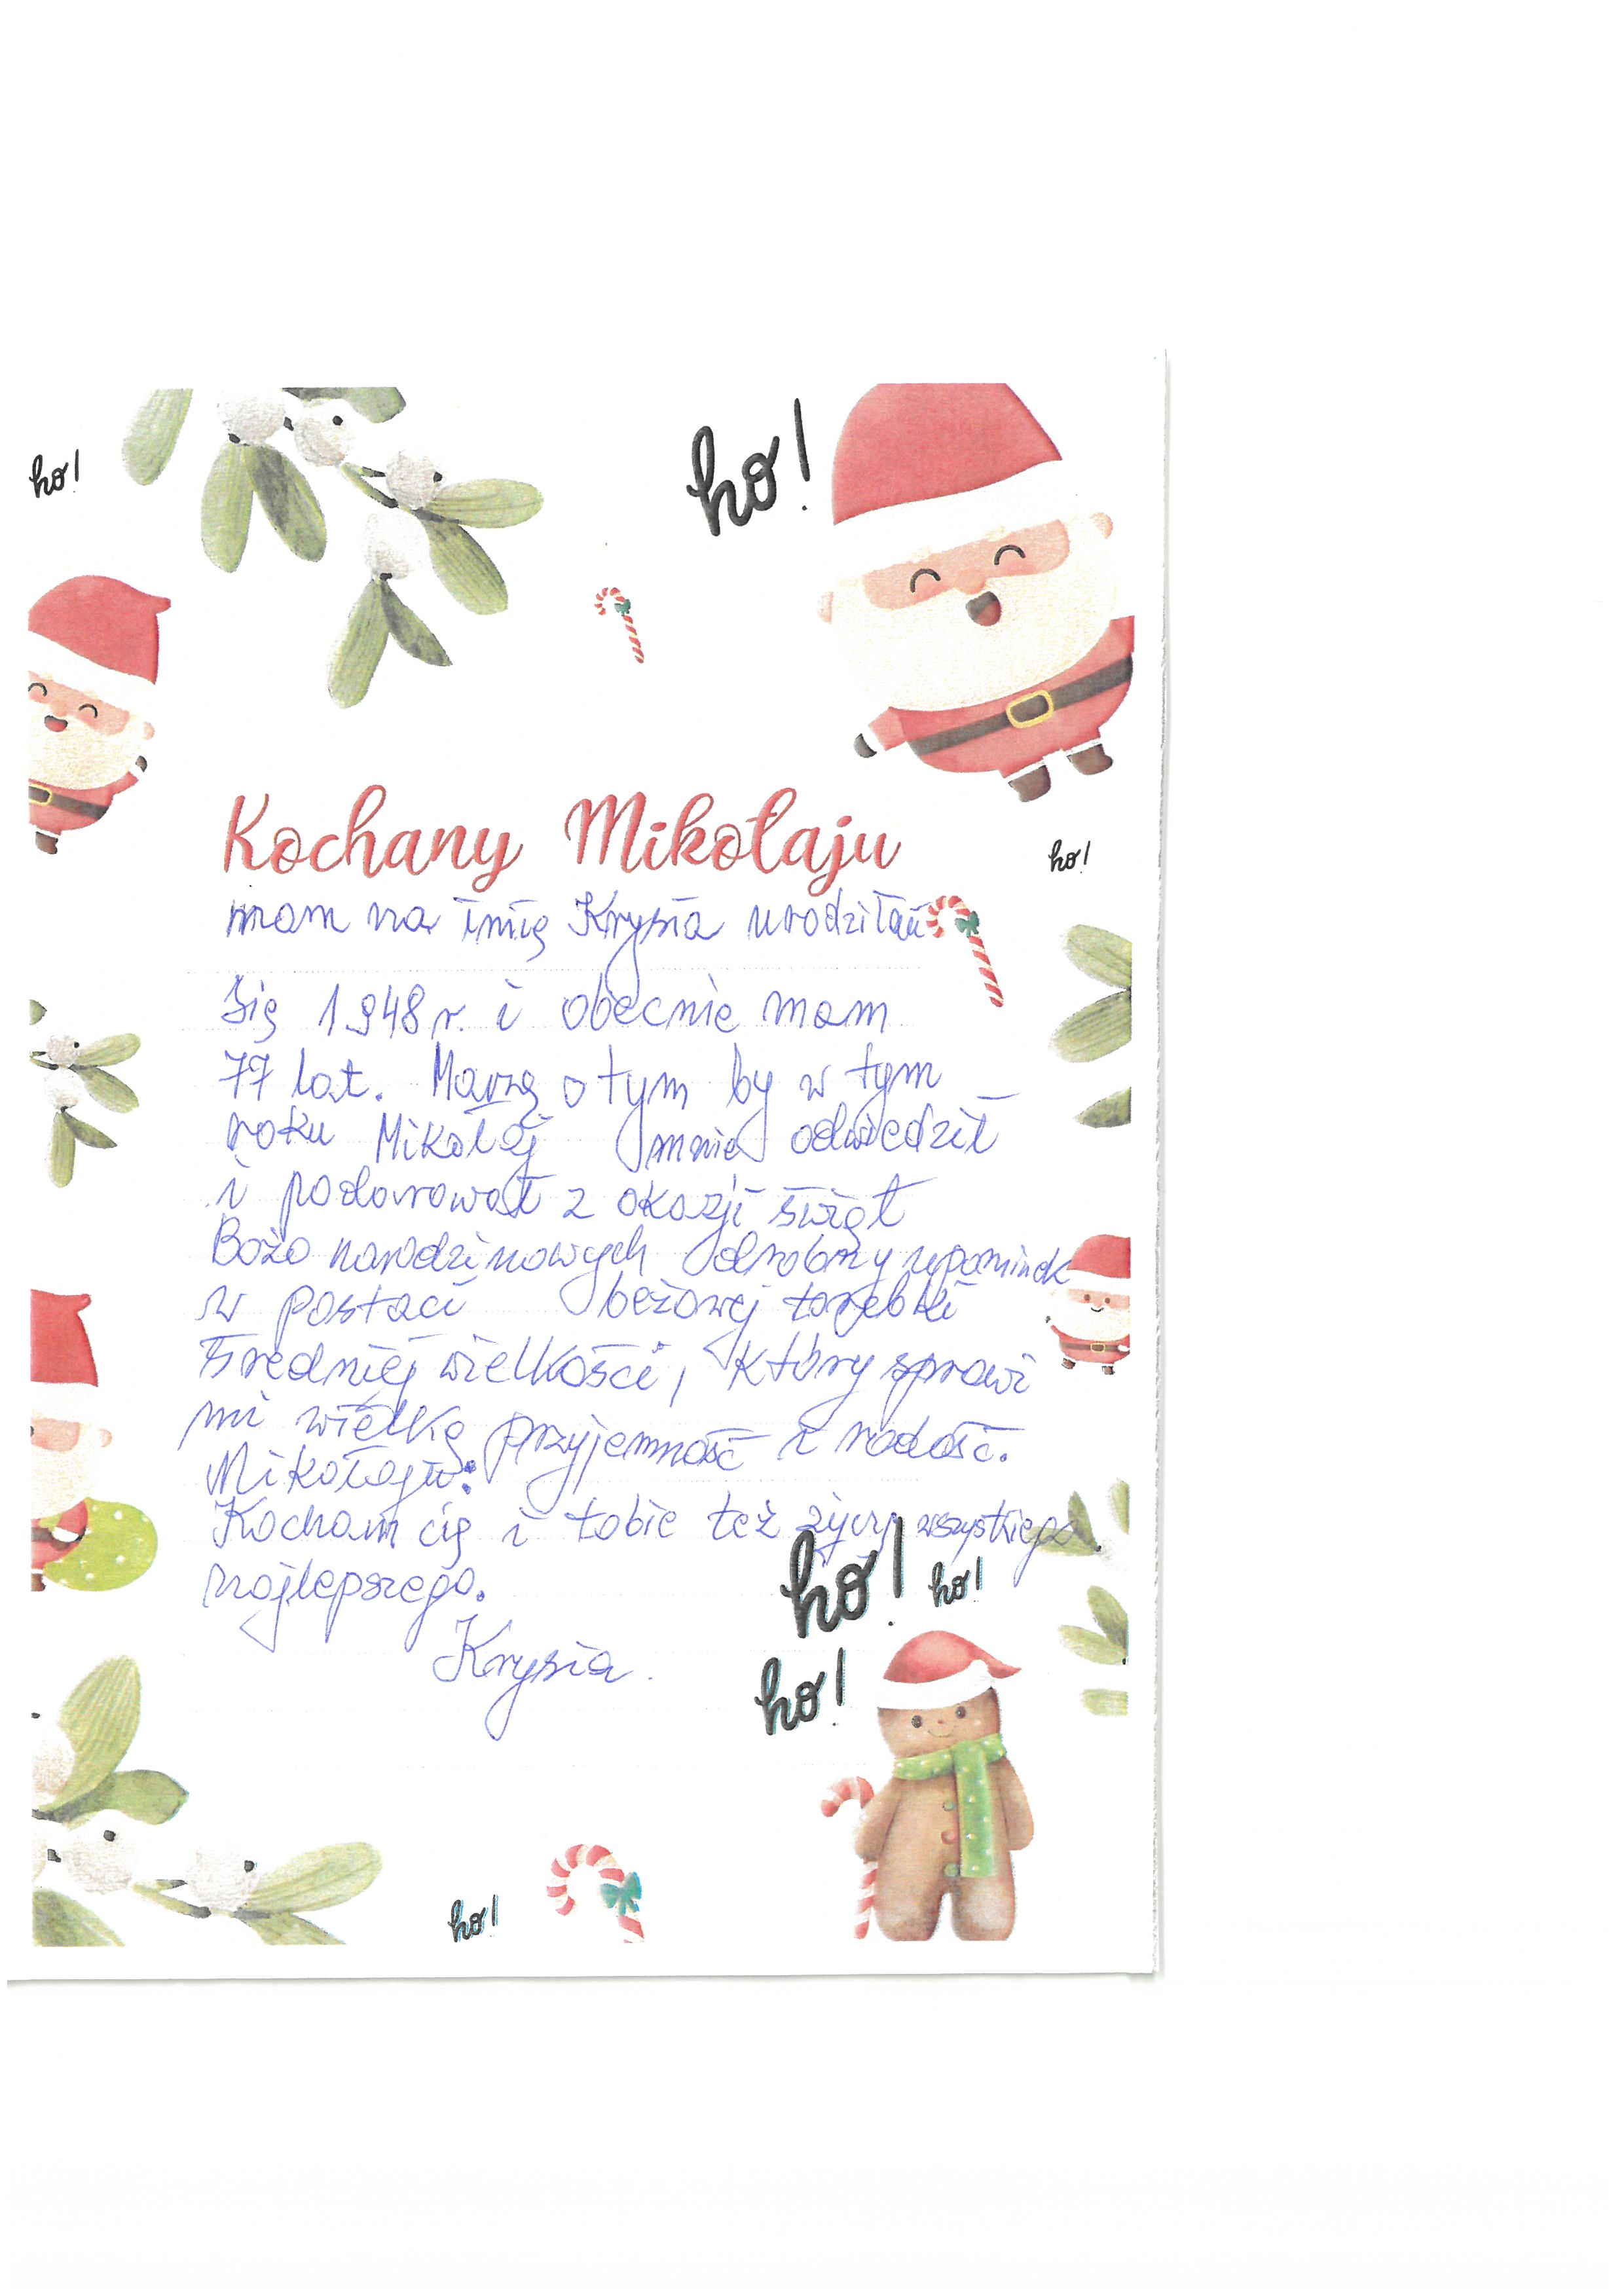 ho!
ho!
Kochany Mikołaju
ho!
mam na imię Krysia urodziłam
się 1948 r. i obecnie mam
77 lat. Marzę o tym by w tym
roku Mikołaj mnie odwiedził
i podarował z okazji świąt
Bożo narodzinowych drobny upominek
w postaci beżowej torebki
średniej wielkości, który sprawi
mi wielką przyjemność i radość.
Mikołaju:
Kocham cię i tobie też życzę wszystkiego
najlepszego.
Krysia.
ho! ho!
ho!
ho!